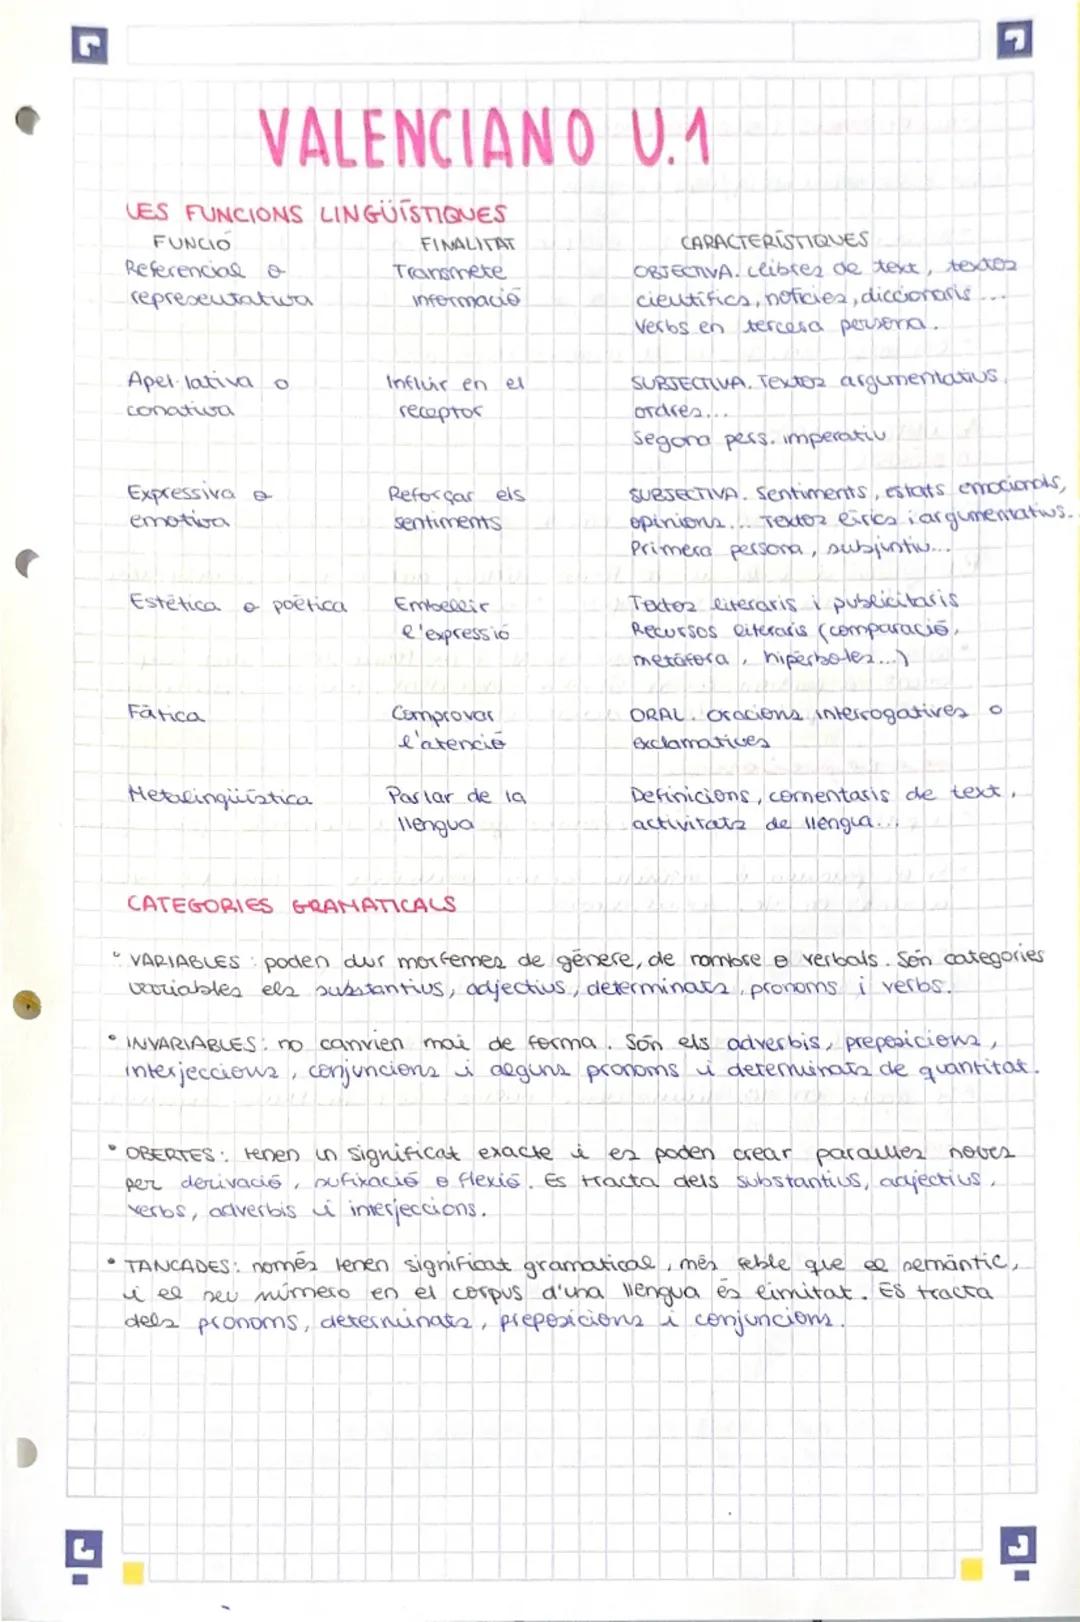 VALENCIANO U.1
LES FUNCIONS LINGÜÍSTIQUES
FUNCIÓ FINALITAT CARACTERÍSTIQUES
Referencial o Transmete OBJECTIVA. Llibres de text, textos
representativa informació científics, notícies, diccionaris...
Verbs en tercera persona.
Apel·lativa o Influir en el SUBJECTIVA. Textos argumentatius,
conativa receptor ordres...
Segona pers. imperatiu
Expressiva o Reforçar els SUBJECTIVA. Sentiments, estats emocionals,
emotiva sentiments opinions... Textos lírics i argumentatius.
Primera persona, subjuntiu...
Estética o poètica Embellir Textos literaris i publicitaris
l'expressió Recursos literaris (comparació,
metáfora, hipérboles...)
Fàtica Comprovar ORAL. Oracions interrogatives o
l'atenció exclamatives
Metalingüística Parlar de la Definicions, comentaris de text,
llengua activitats de llengua...
CATEGORIES GRAMATICALS
• VARIABLES: poden dur morfemes de gènere, de nombre o verbals. Són categories
variables els substantius, adjectius, determinats, pronoms i verbs.
• INVARIABLES: no canvien mai de forma. Són els adverbis, preposicions,
interjeccions, conjuncions i alguns pronoms i determinats de quantitat.
• OBERTES: tenen un significat exacte i es poden crear paraules noves
per derivació, sufixació o flexió. Es tracta dels substantius, adjectius,
verbs, adverbis i interjeccions.
• TANCADES: només tenen significat gramatical, més feble que el semàntic,
i el seu número en el corpus d'una llengua és limitat. Es tracta
dels pronoms, determinats, preposicions i conjuncions.